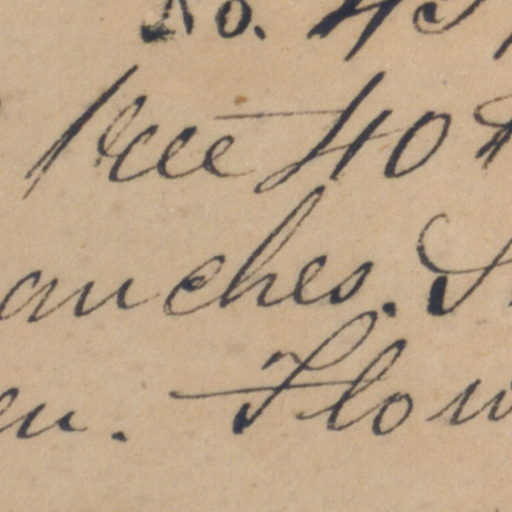 No. 45
Tree 40 f
anches. S
en. Flow